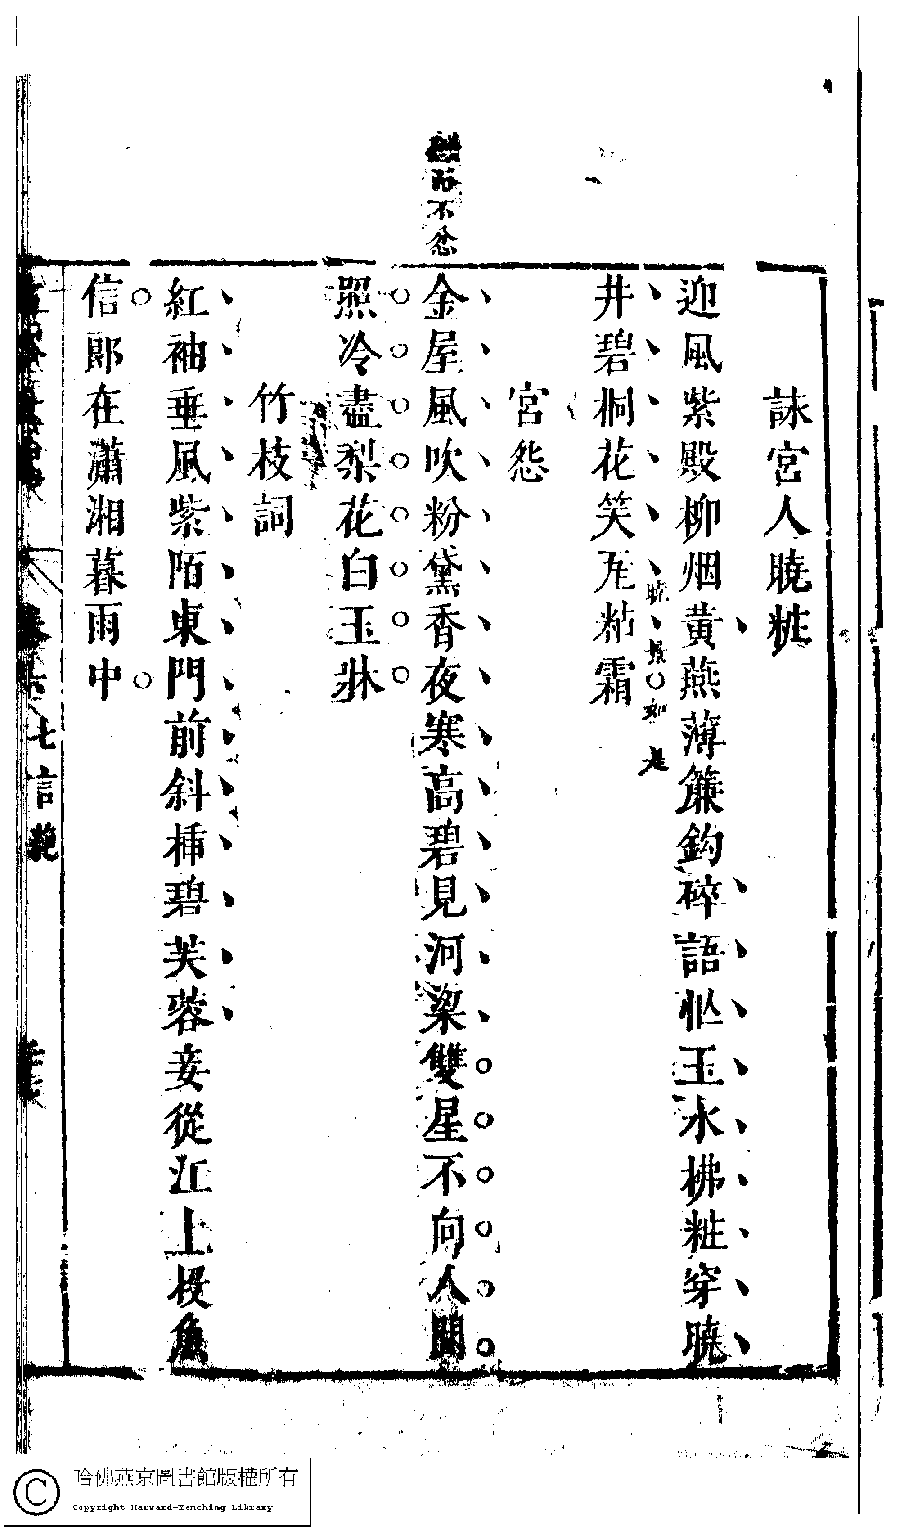 詠宮人曉粧
迎風紫殿柳烟黄燕薄簾鈎碎語忙玉水梻粧穿曉
井碧桐花笑瓦粘霜
宮怨
金屋風吹粉黛香夜寒高碧見河梁雙星不向人間
照冷盡梨花白玉牀
竹枝詞
紅袖垂風紫陌東門前斜插碧芙蓉妾從江上投魚
信郎在瀟湘暮雨中
而不怨
七言
哈佛燕京圖書館版權所有
Copyright Harvard-Yenching Library